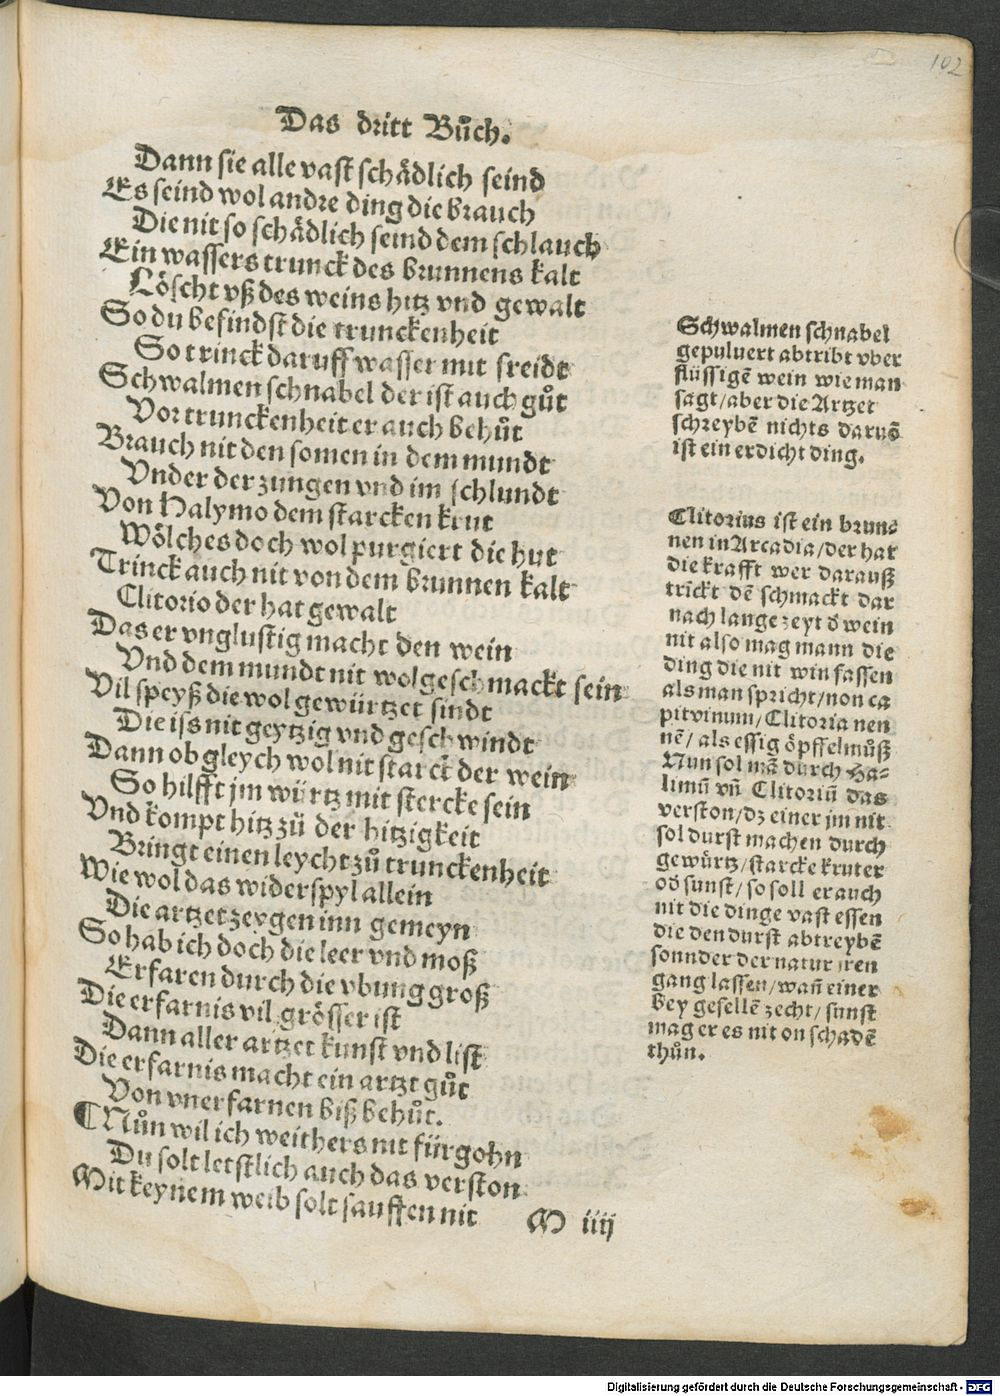 102
Das dritt Bůch.
Dann sie alle vast schådlich seind
Es seind wol andre ding die brauch
Die nit so schådlich seind dem schlauch
Ein wassers trunck des brunnens kalt
Löscht vß des weins hitz vnd gewalt
So du befindst die trunckenheit
So trinck daruff wasser mit freidt
Schwalmen schnabel der ist auch gůt
Vor trunckenheit er auch behůt
Brauch nit den somen in dem mundt
Vnder der zungen vnd im schlundt
Von Halymo dem starcken krut
Wölches doch wol purgiert die hut
Trinck auch nit von dem brunnen kalt
Clitorio der hat gewalt
Das er vnglustig macht den wein
Vnd dem mundt nit wolgeschmackt sein
Vil speyß die wol gewürtzet sindt
Die iß nit geytzig vnd geschwindt
Dann ob gleych wol nit starck der wein
So hilfft jm würtz mit stercke sein
Vnd kompt hitz zů der hitzigkeit
Bringt einen leycht zů trunckenheit
Wie wol das widerspyl allein
Die artzet zeygen inn gemeyn
So hab ich doch die leer vnd moß
Erfaren durch die vbung groß
Die erfarnis vil grösser ist
Dann aller artzet kunst vnd list
Die erfarnis macht ein artzt gůt
Von vnerfarnen biß behůt.
¶ Nůn wil ich weithers nit fürgohn
Du solt letstlich auch das verston
Mit keynem weib solt sauffen nit
M iiij
Schwalmen schnabel
gepuluert abtribt vber
flüssigē wein wie man
sagt/aber die Artzet
schreybē nichts daruō
ist ein erdicht ding.
Clitorius ist ein brun⸗
nen in Arcadia/der hat
die krafft wer darauß
trīckt dē schmackt dar
nach lange zeyt ð wein
nit also mag mann die
ding die nit win fassen
als man spricht/non ca
pit vinum/Clitoria nen
nē/als essig öpffelmůß
Nun sol mā durch Ha⸗
limū vñ Clitoriū das
verston/dz einer jm nit
sol durst machen durch
gewürtz/starcke kruter
oð sunst/so soll er auch
nit die dinge vast essen
die den durst abtreybē
sonnder der natur jren
gang lassen/wañ einer
bey gesellē zecht/sunst
mag er es nit on schadē
thůn.
Digitalisierung gefördert durch die Deutsche Forschungsgemeinschaft - DFG